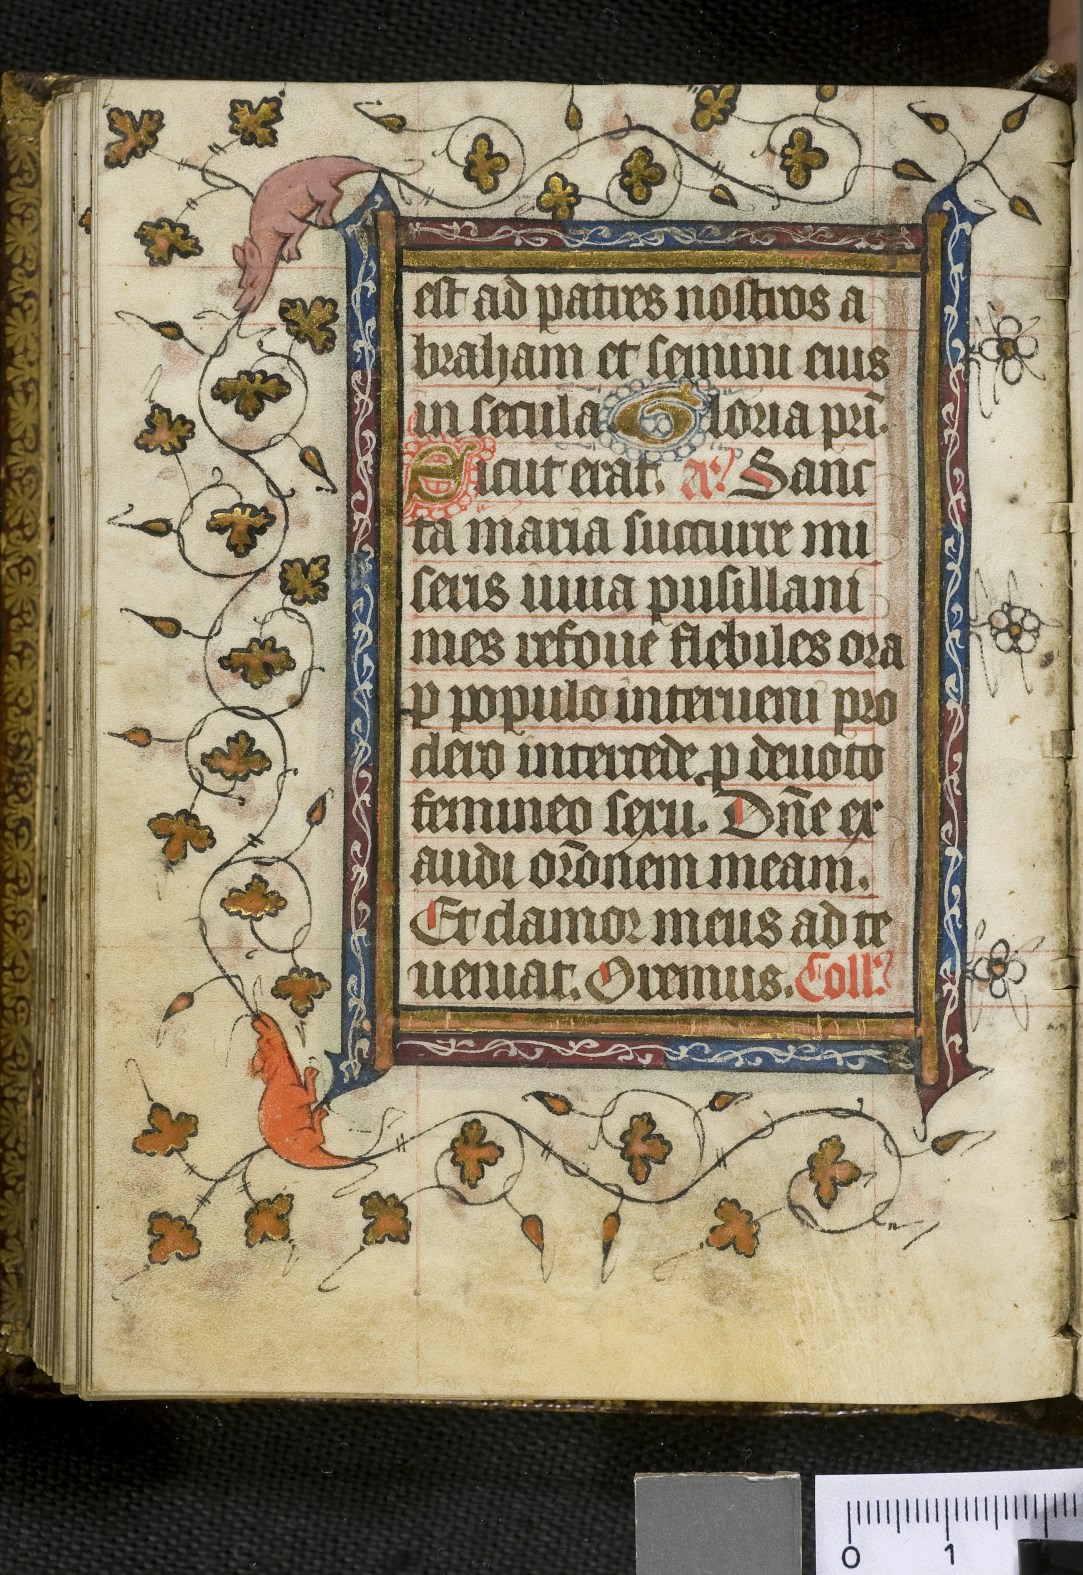 est ad patres nostros a
braham et semini eius
in secula Gloria pr̄i.
Sicut erat. A? Sanc
ta maria succurre mi
seris iuua pusillani
mes refoue flebiles ora
p populo interueni pro
clero intercede p deuoto
femineo sexu. Dn̄e ex
audi or̄onem meam.
Et clamor meus ad te
ueniat. Oremus. Coll?
0 1